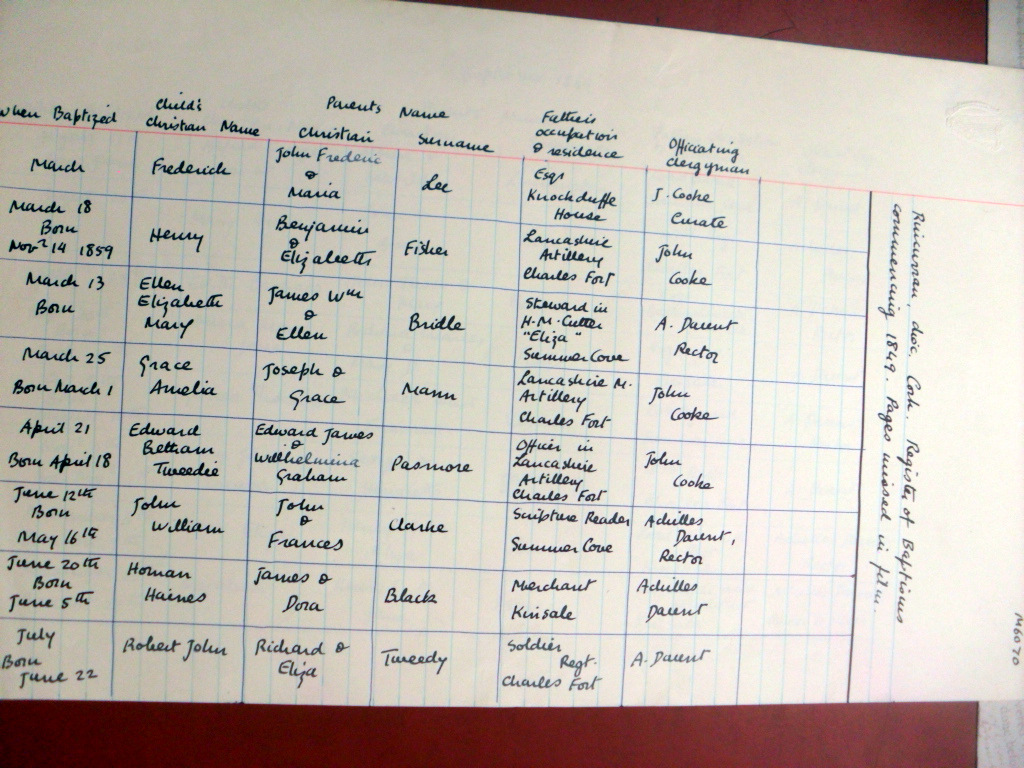 When Baptized Child's Christian Name Parents Name Christian Surname Father's occupation & residence Officiating Clergyman
March Frederick John Frederic & Maria Lee Esqr Knockduffe House J. Cooke Curate
March 18 Born Novr 14 1859 Henry Benjamin & Elizabeth Fisher Lancashire Artillery Charles Fort John Cooke
March 13 Born Ellen Elizabeth Mary James Wm & Ellen Bridle Steward in H.M. Cutter "Eliza" Summer Cove A. Daunt Rector
March 25 Born March 1 Grace Amelia Joseph & Grace Mann Lancashire M. Artillery Charles Fort John Cooke
April 21 Born April 18 Edward Betham Tweedie Edward James & Wilhelmina Graham Pasmore Officer in Lancashire Artillery Charles Fort John Cooke
June 12th Born May 16th John William John & Frances Clarke Scripture Reader Summer Cove Achilles Daunt, Rector
June 20th Born June 5th Homan Haines James & Dora Black Merchant Kinsale Achilles Daunt
July Born June 22 Robert John Richard & Eliza Tweedy Soldier Regt. Charles Fort A. Daunt
Rincurran, dioc. Cork. Register of Baptisms
commencing 1849. Pages missed in film.
M6070